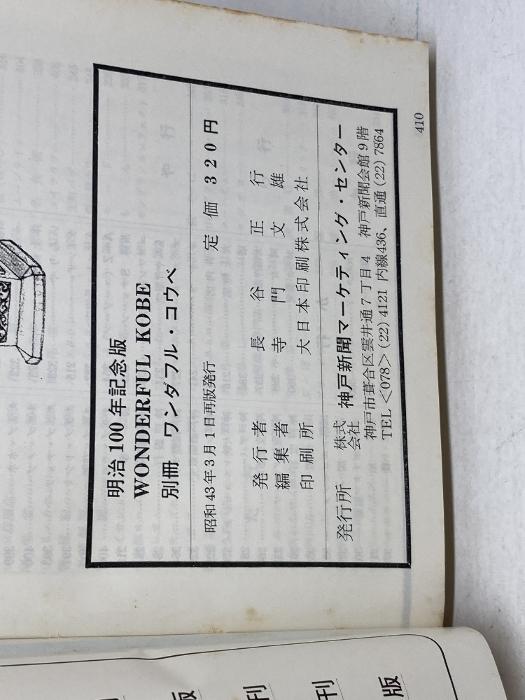 明治100年記念版
WONDERFUL KOBE
別冊 ワンダフル・コウベ
昭和43年3月1日再版発行 定価 320円
発行者 長谷正行
編集者 寺門文雄
印刷所 大日本印刷株式会社
発行所 株式会社 神戸新聞マーケティング・センター
神戸市葺合区雲井通7丁目4 神戸新聞会館9階
TEL<078>(22)4121 内線436、直通(22)7864
410
刊
刊
版